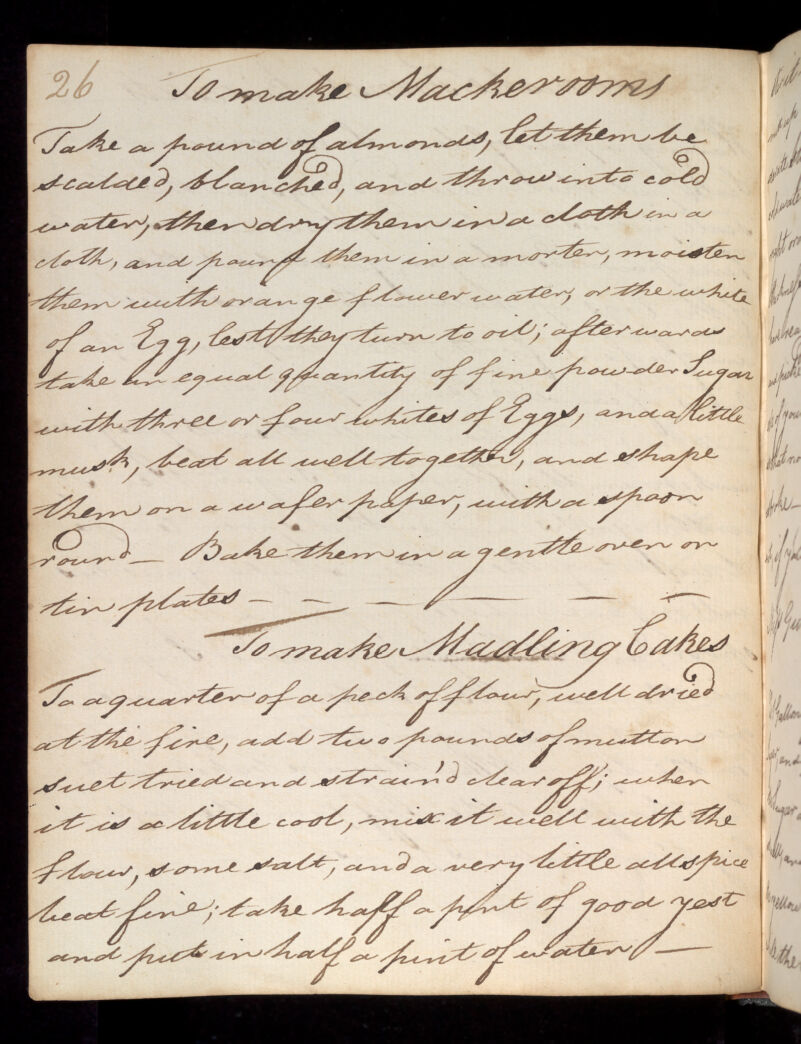 26
To make Mackerooms
Take a pound of almonds, let them be
scalded, blanched, and throw into cold
water, then dry them in a cloth in a
cloth, and pound them in a morter, moisten
them with orange flower water, or the white
of an Egg, lest they turn to oil; afterwards
take an equal quantity of fine powder Sugar
with three or four whites of Eggs, and a little
musk, beat all well together, and shape
them on a wafer paper, with a spoon
round — Bake them in a gentle oven on
tin plates — — — — — —
To make Madling Cakes
To a quarter of a peck of flour, well dried
at the fire, add two pounds of mutton
suet tried and strain'd clear off; when
it is a little cool, mix it well with the
flour, some salt, and a very little allspice
beat fine; take half a pint of good yest
and put in half a pint of water —